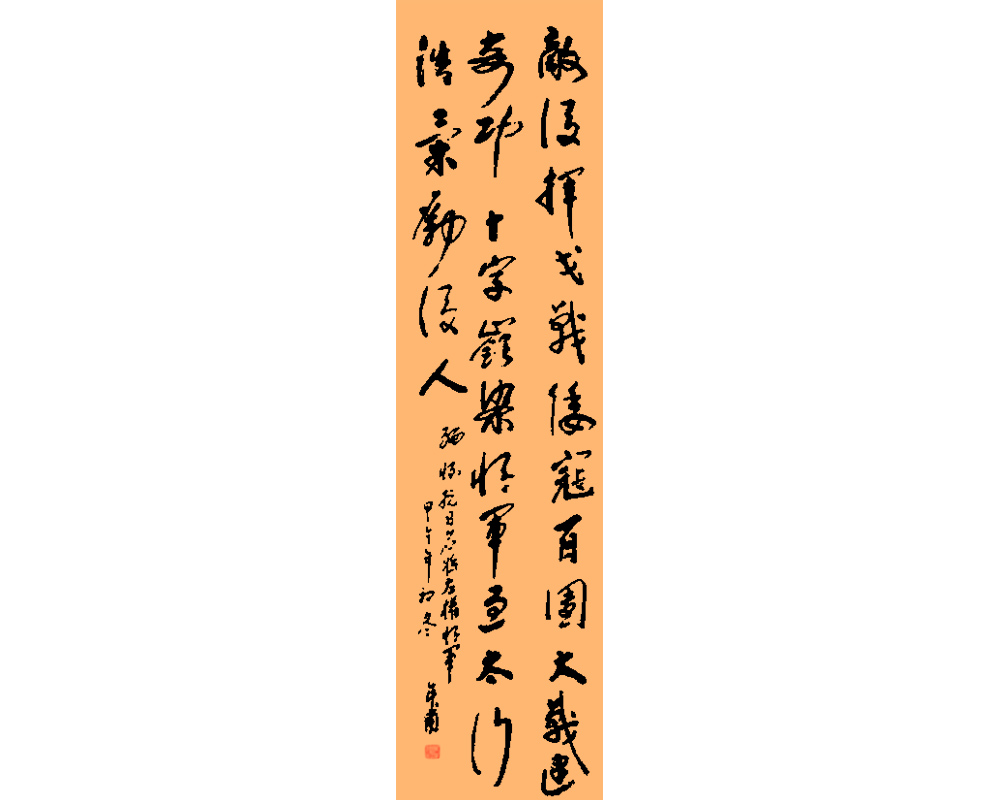 敵後揮戈戰倭寇百團大戰建
奇功十字嶺染將軍血太行
浩氣勵後人
緬懷抗日名將左權將軍
甲午年初冬